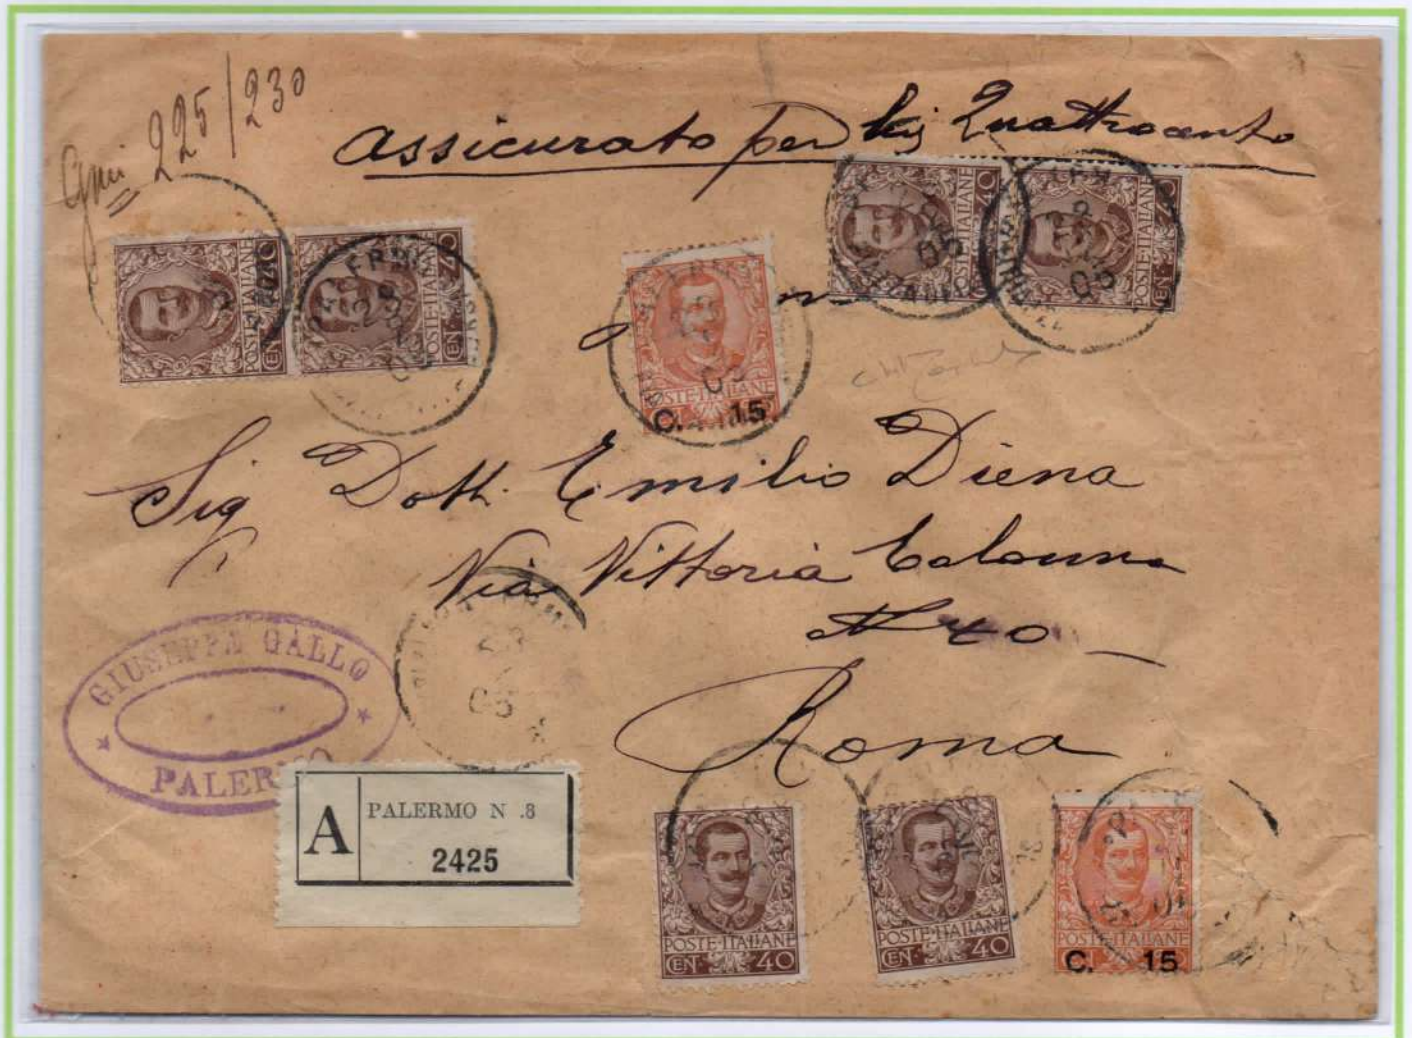 Gmi 225/230
Assicurato per Lire Quattrocento
POSTE·ITALIANE
CEN 40
POSTE·ITALIANE
CEN 40
POSTE·ITALIANE
C. 15
POSTE·ITALIANE
CEN 40
POSTE·ITALIANE
CEN 40
Sig Dott. Emilio Diena
Via Vittoria Colonna
Roma
GIUSEPPE GALLO
PALERMO
A
PALERMO N .3
2425
POSTE·ITALIANE
CEN 40
POSTE·ITALIANE
CEN 40
POSTE·ITALIANE
C. 15